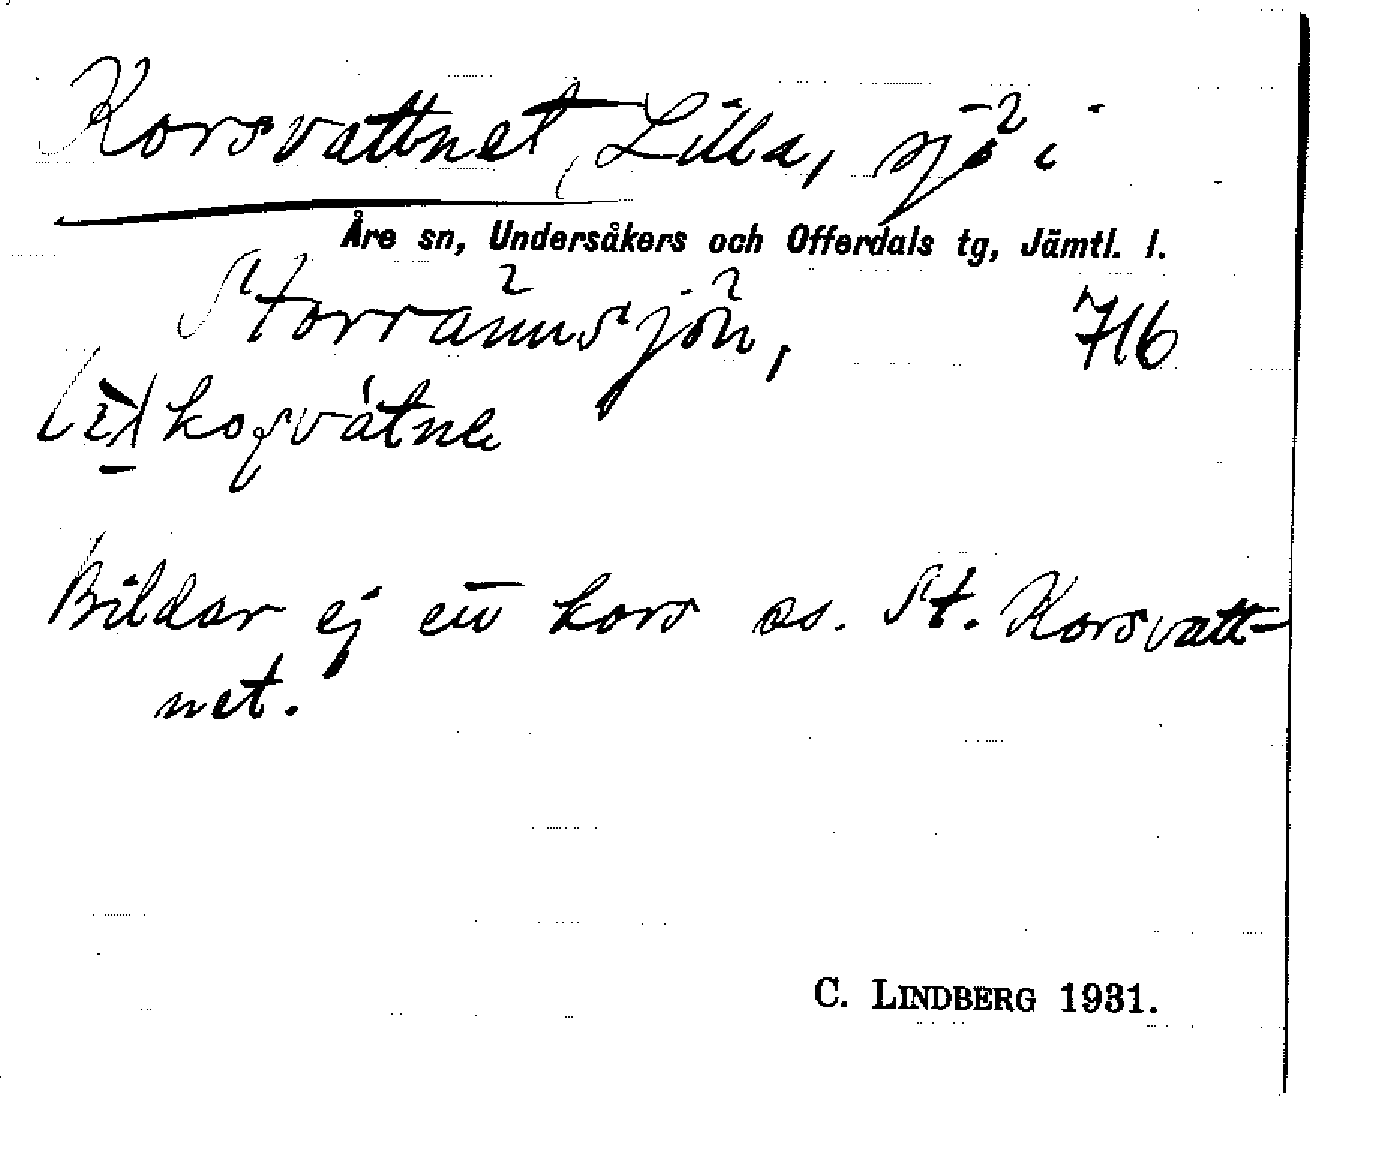 Korsvattnet, Lilla, sjö i
Åre sn, Undersåkers och Offerdals tg, Jämtl. l.
Storrännsjön, 716
Bildar ej ett kors os. St. Korsvatt-
net.
C. LINDBERG 1931.